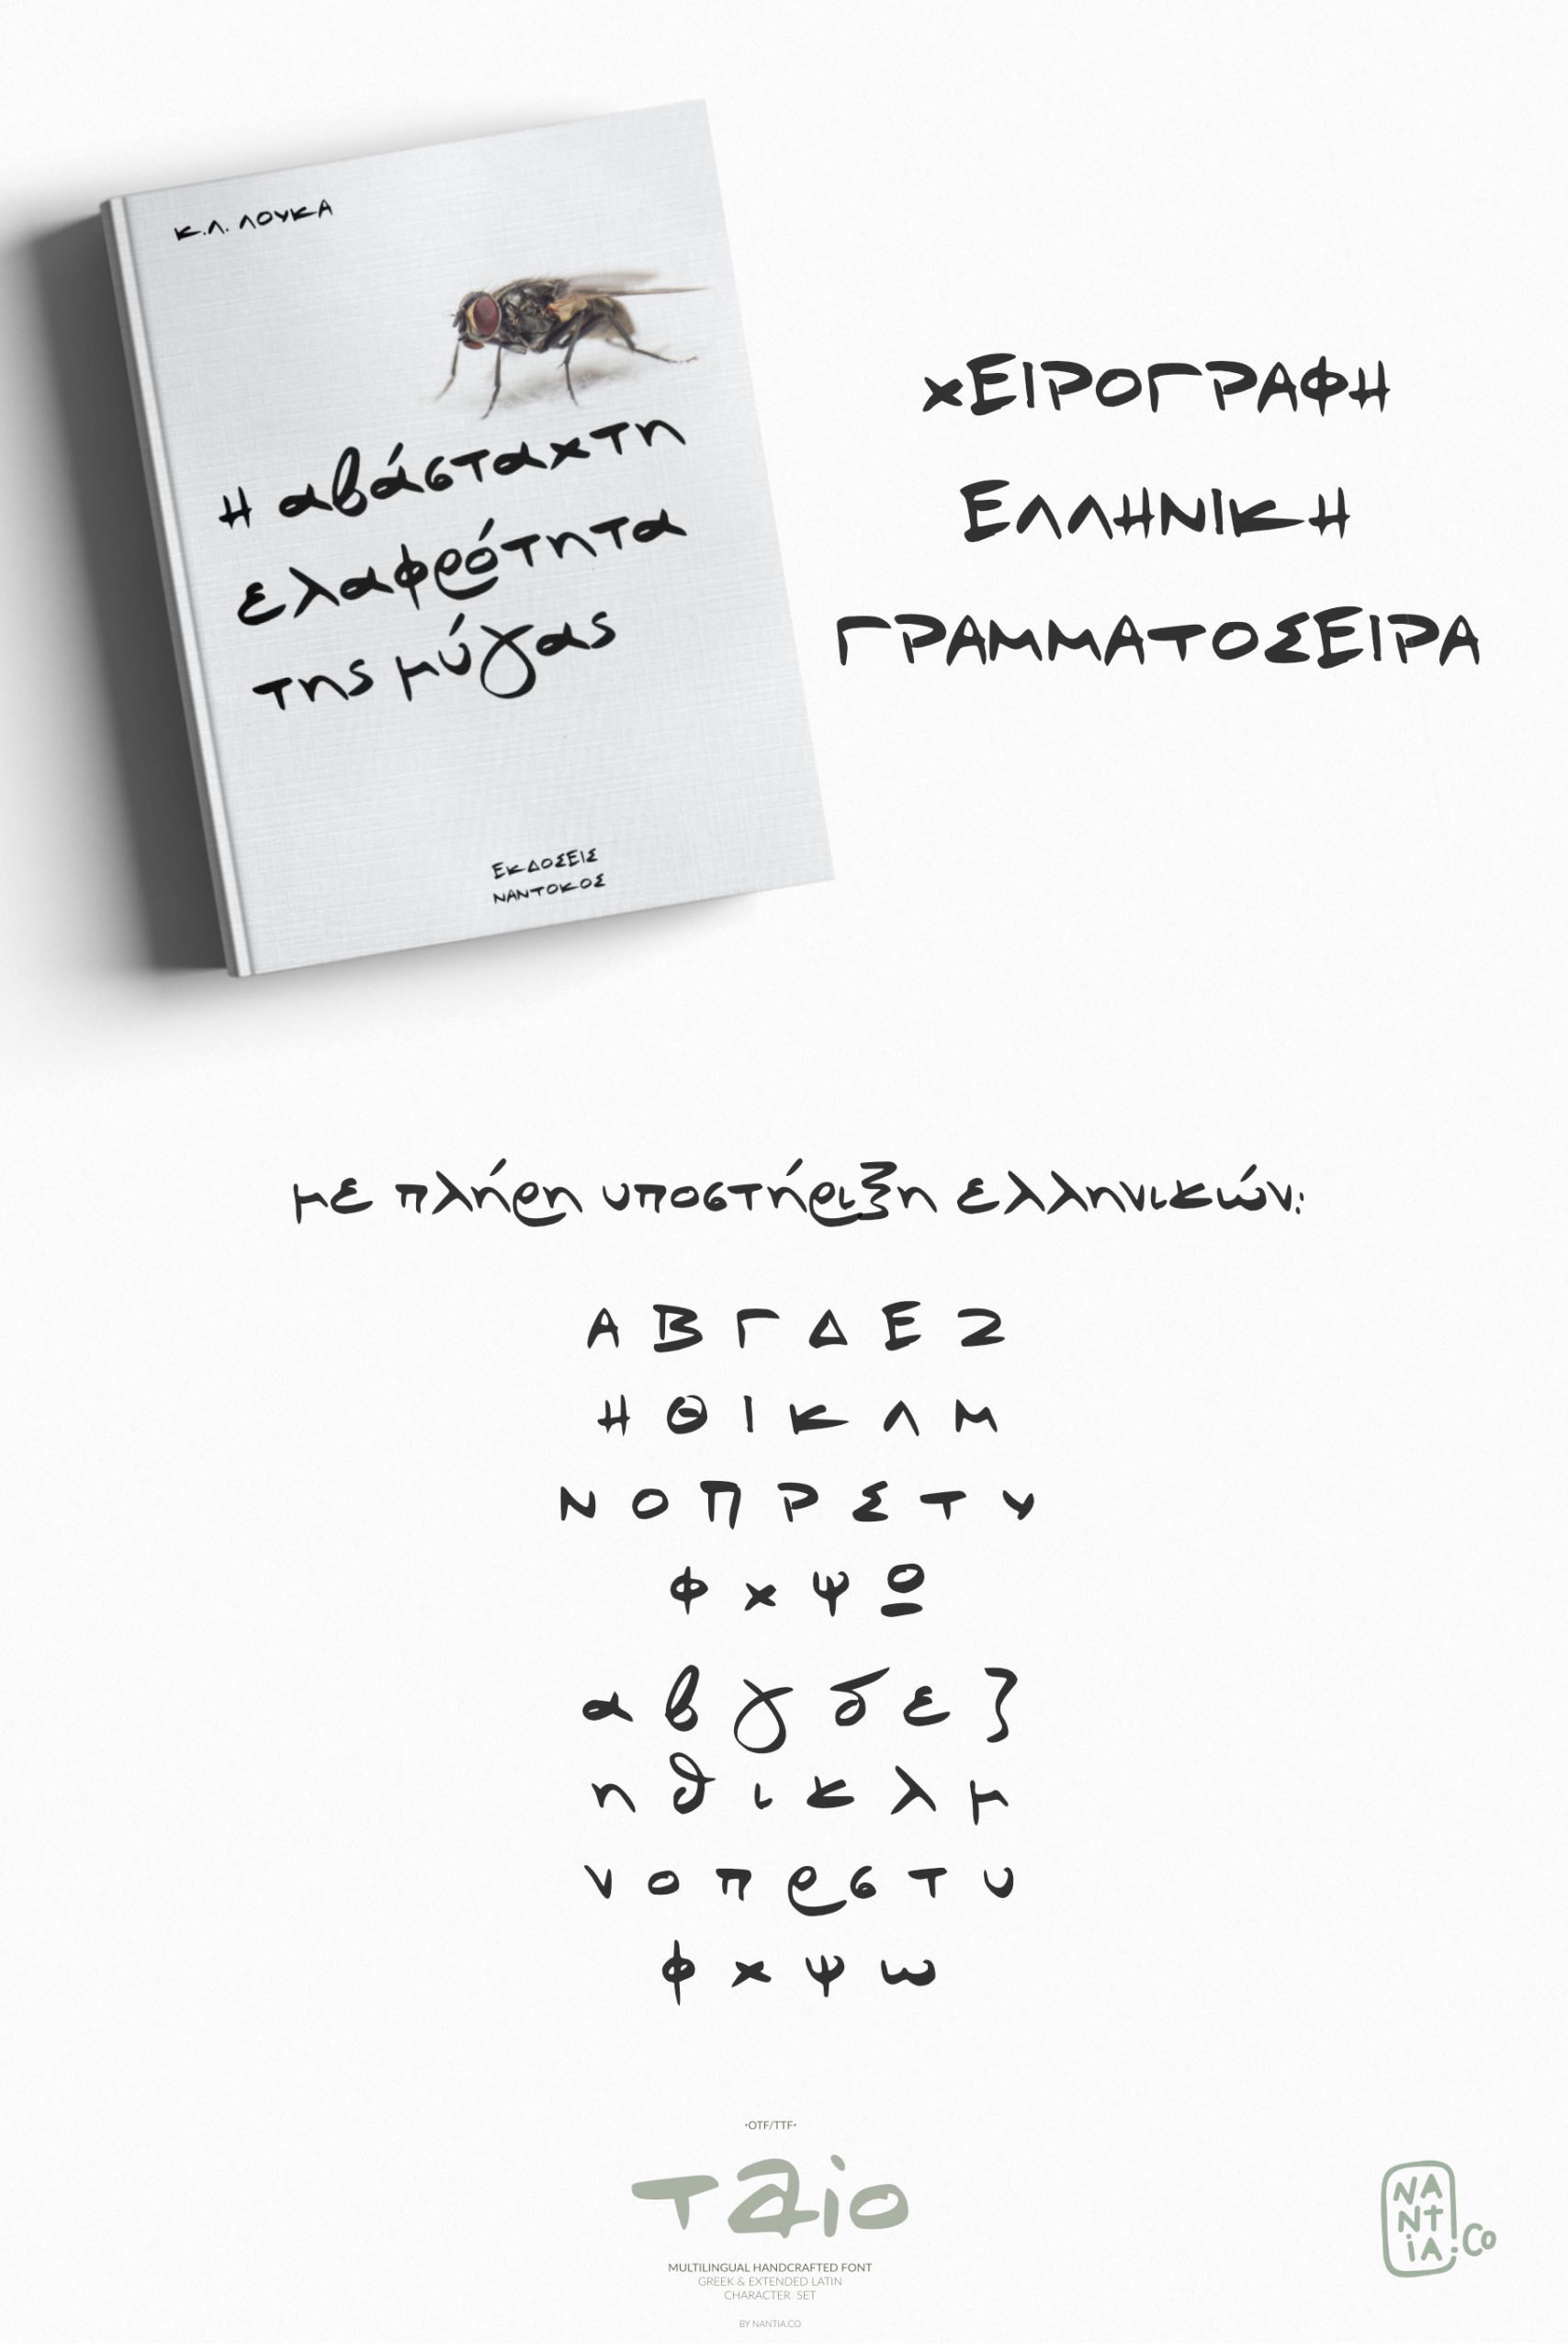 Κ.Λ. ΛΟΥΚΑ
Η αβάσταχτη
ελαφρότητα
της μύγας
ΕΚΔΟΣΕΙΣ
ΝΑΝΤΟΚΟΣ
ΧΕΙΡΟΓΡΑΦΗ
ΕΛΛΗΝΙΚΗ
ΓΡΑΜΜΑΤΟΣΕΙΡΑ
με πλήρη υποστήριξη ελληνικών:
Α Β Γ Δ Ε Ζ
Η Θ Ι Κ Λ Μ
Ν Ο Π Ρ Σ Τ Υ
Φ Χ Ψ Ω
α β γ δ ε ζ
η θ ι κ λ μ
ν ο π ρ σ τ υ
φ χ ψ ω
•OTF/TTF•
Taio
MULTILINGUAL HANDCRAFTED FONT
GREEK & EXTENDED LATIN
CHARACTER SET
BY NANTIA.CO
NA
Nt
iA.Co